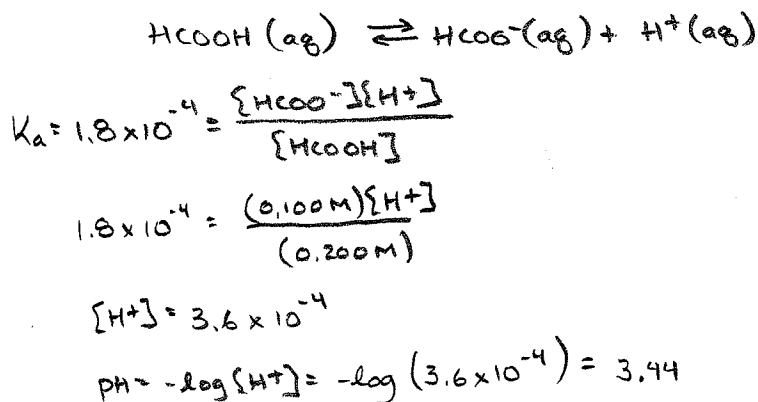 HCOOH (aq) ⇌ HCOO⁻(aq) + H⁺(aq)
Ka = 1.8 × 10⁻⁴ = [HCOO⁻][H⁺] / [HCOOH]
1.8 × 10⁻⁴ = (0.100M)[H⁺] / (0.200M)
[H⁺] = 3.6 × 10⁻⁴
pH = -log[H⁺] = -log (3.6×10⁻⁴) = 3.44